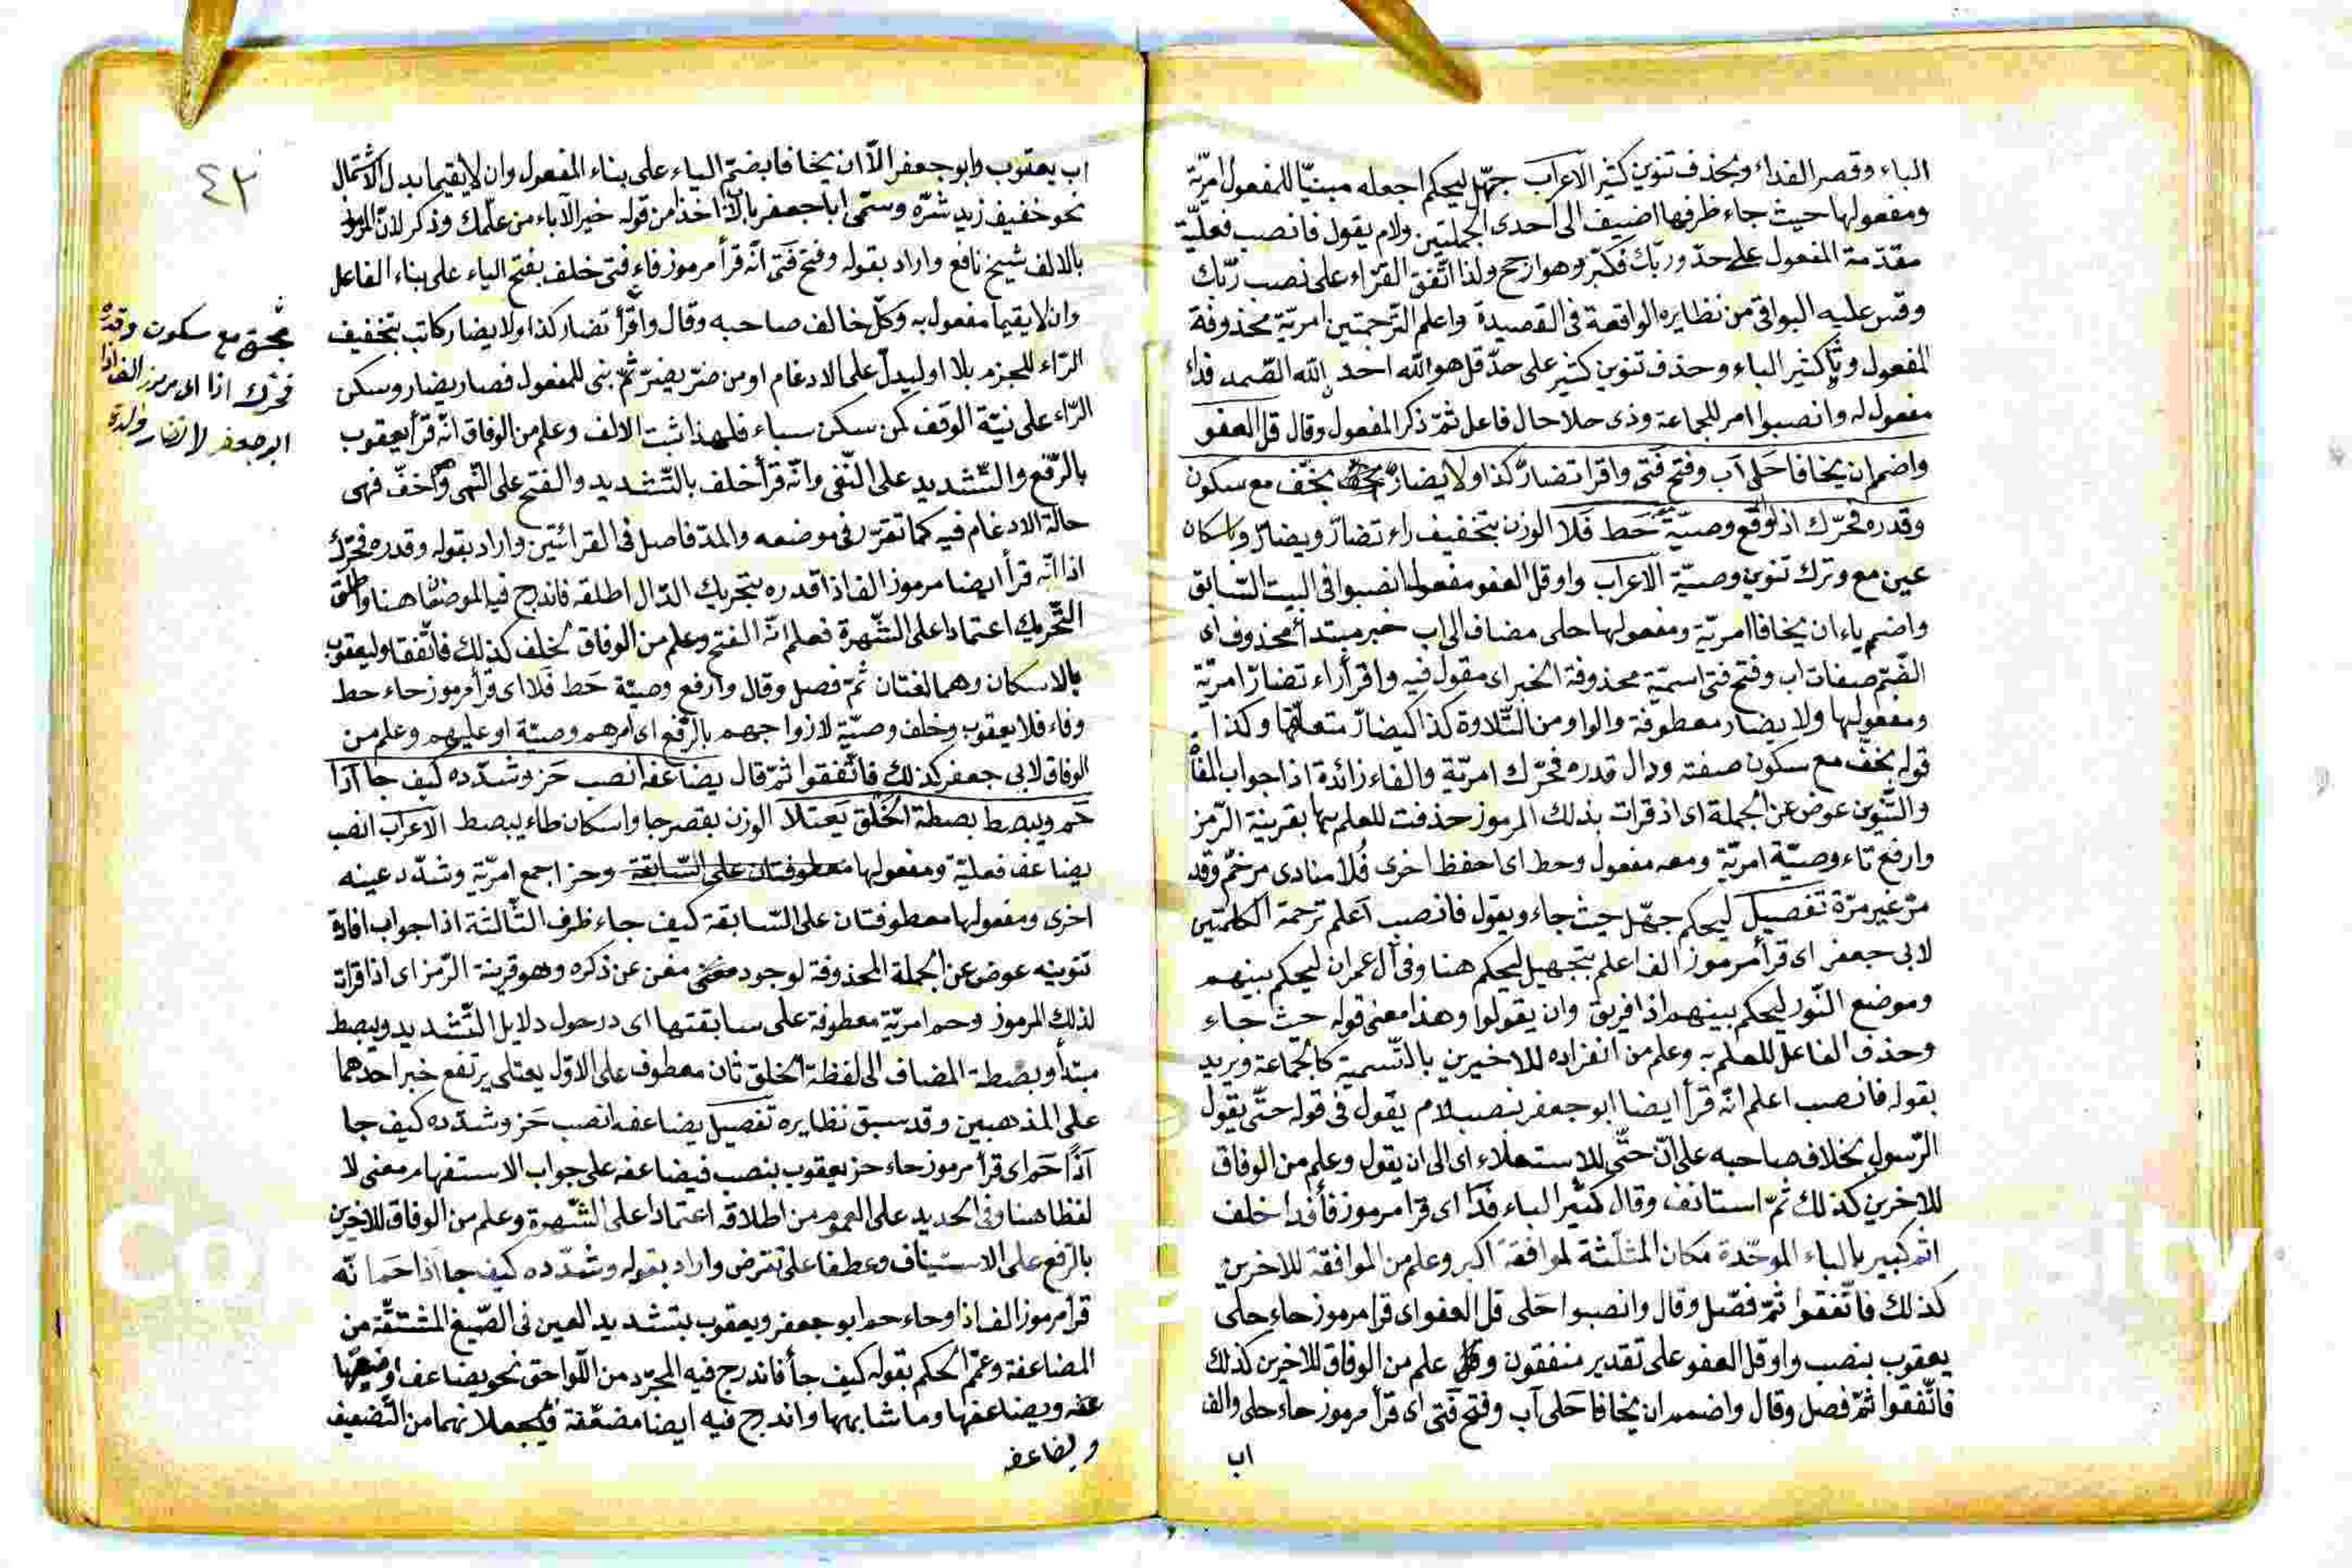 الباء وقصر الفداء وبحذف تنوين كثير الاعراب جهّل ليحكم اجعله مبنيّا للمفعول امريّة
ومفعولها حيث جاء ظرفها اضيف الى احدى الجملتين ولام يقول فانصب فعليّة
مقدّمة المفعول على حدّ وربّك فكبّر وهو ارجح ولذا اتّفق القرّاء على نصب ربّك
وقس عليه البواقى من نظايره الواقعة فى القصيدة واعلم الترجمتين امريّة محذوفة
المفعول وبا كثير الباء وحذف تنوين كثير على حدّ قل هو الله احد الله الصّمد فداء
مفعول له وانصبوا امر للجماعة وذى حلا حال فاعل ثمّ ذكر المفعول وقال قل العفو
واضمم ان يخافا حَلى آب وفتح فتى واقرا تضارّ كذا ولا يضارّ بخفّ مع سكون
وقدره فحرّك اذا وارفع وصيّة حَط فَلا الوزن بتخفيف راء تضارّ ويضارّ واسكان
عين مع وترك تنوين وصيّة الاعراب واو قل العفو مفعول انصبوا فى البيت السّابق
واضمم ياء ان يخافا امريّة ومفعولها حلى مضاف الى اب خبر مبتدأ محذوف اى
الضّمّ صفات اب وفتح فتى اسميّة محذوفة الخبر اى مقول فيه واقرأ راء تضارّ امريّة
ومفعولها ولا يضار معطوفة والواو من التّلاوة كذا كيضارّ متعلّقها وكذا
قوله بخفّ مع سكون صفته ودال قدره فحرّك امريّة والفاء زائدة اذا جواب
والتّنوين عوض عن الجملة اى اذ قرات بذلك المرموز حذفت للعلم بها بقرينة الرّمز
وارفع تاء وصيّة امريّة ومعه مفعول وحط اى احفظ اخرى فُلا منادى مرخّم وقد
مرّ غير مرّة تفصيل ليحكم جهّل حيث جاء ويقول فانصب اَعلم ترجمة الكلمتين
لابى جعفر اى قرأ مرموز الف اعلم بتجهيل ليحكم هنا وفى آل عمران ليحكم بينهم
وموضع النّور ليحكم بينهم اذا فريق وان يقولوا وهذا معنى قوله حيث جاء
وحذف الفاعل للعلم به وعلم من انفراده للاخيرين بالتّسمية كالجماعة ويريد
بقوله فانصب اعلم انّه قرأ ايضا ابو جعفر بنصب لام يقول فى قوله حتّى يقول
الرّسول بخلاف صاحبه على انّ حتّى للاستعلاء اى الى ان يقول وعلم من الوفاق
للاخرين كذلك ثمّ استانف وقال كثير الباء فدًا اى قرا مرموز فاء فدا خلف
اثم كبير بالباء الموحّدة مكان المثلّثة لموافقة اكبر وعلم من الموافقة للاخرين
كذلك فاتّفقوا ثمّ فصّل وقال وانصبوا حَلى قل العفو اى قرا مرموز حاء حلى
يعقوب بنصب واو قل العفو على تقدير منفقون علم من الوفاق للاخرين كذلك
فاتّفقوا ثمّ فصل وقال واضمم ان يخافا حَلى آب وفتح فتى اى قرأ مرموز حاء حلى والف
اب
٤٣
اب يعقوب وابو جعفر الّا ان يخافا بضمّ الياء على بناء المفعول وان لا يقيما بدل الاشتمال
نحو خفيف زيد شرّه وسمّى ابا جعفر بالاب اخذا من قوله خير الآباء من علّمك وذكر لانّ المرموز
بالالف شيخ نافع واراد بقوله وفتح فَتى انّه قرأ مرموز فاء فتى خلف بفتح الياء على بناء الفاعل
وان لا يقيما مفعول به وكلّ خالف صاحبه وقال واقرأ تضار كذا ولا يضار كاتب بتخفيف
الرّاء للجزم بلا او ليدلّ على الادغام او من ضرّ يضرّ ثمّ بنى للمفعول فصار يضار وسكن
الرّاء على نيّة الوقف كمن سكن سباء فلهذا ثبت الالف وعلم من الوفاق انّه قرأ يعقوب
بالرّفع والتّشديد على النّفى وانّه قرأ خلف بالتّشديد والفتح على النّهى وآخفّ فهى
حالة الادغام فيه كما تقرّر فى موضعه والمدّ فاصل فى القرائتين واراد بقوله وقدره فحرّك
اذا انّه قرأ ايضا مرموز الف اذا قدره بتحريك الدّال اطلقه فاندرج فيه الموضعان هنا واطلق
التّحريك اعتمادا على الشّهرة فعلم انّه الفتح وعلم من الوفاق لخلف كذلك فاتّفقا وليعقوب
بالاسكان وهما لغتان ثمّ فصل وقال وارفع وصيّة حَط فَلا اى قرأ مرموز حاء حط
وفاء فلا يعقوب وخلف وصيّة لازواجهم بالرّفع اى امرهم وصيّة او عليهم وعلم من
الوفاق لابى جعفر كذلك فاتّفقوا ثمّ قال يضاعفه انصب حَز وشدّده كيف جا اذا
حَم ويبصط بصطة الخَلق يَعتلا الوزن بقصر جا واسكان طاء يبصط الاعراب انصب
يضاعف فعليّة ومفعولها معطوفتان على السّابقة وحز اجمع امريّة وشدّد عينه
اخرى ومفعولها معطوفتان على السّابقة كيف جاء ظرف الثّالثة اذا جواب افادة
تنوينه عوض عن الجملة المحذوفة لوجود مغن عن ذكره وهو قرينة الرّمز اى اذا قراة
لذلك المرموز وحم امريّة معطوفة على سابقتها اى درحول دلايل التّشديد ويبصط
مبتدأ وبصطة المضاف الى لفظة الخلق ثان معطوف على الاوّل يعتلى يرتفع خبر احدهما
على المذهبين وقد سبق نظايره تفصيل يضاعفه انصب حَز وشدّده كيف جا
اَذًا حَم اى قرأ مرموز حاء حز يعقوب بنصب فيضاعفه على جواب الاستفهام معنى لا
لفظا هنا وفى الحديد على العموم من اطلاقه اعتمادا على الشّهرة وعلم من الوفاق للاخرين
بالرّفع على الاستيناف وعطفا على تقرض واراد بقوله وشدّده كيف جا اذا حم انّه
قرأ مرموز الف اذا وحاء حم ابو جعفر ويعقوب بتشديد العين فى الصّيغ المشتقّة من
المضاعفة وعمّ الحكم بقوله كيف جأ فاندرج فيه المجرّد من اللّواحق نحو يضاعف
عفه ويضاعفها وما شابهها واندرج فيه ايضا مضعّفة من التّضعيف
ويضاعفه
بخف مع سكون وقدره
فحرّك اذا اى مرموز الف اذا
ابو جعفر لا تضار والدة